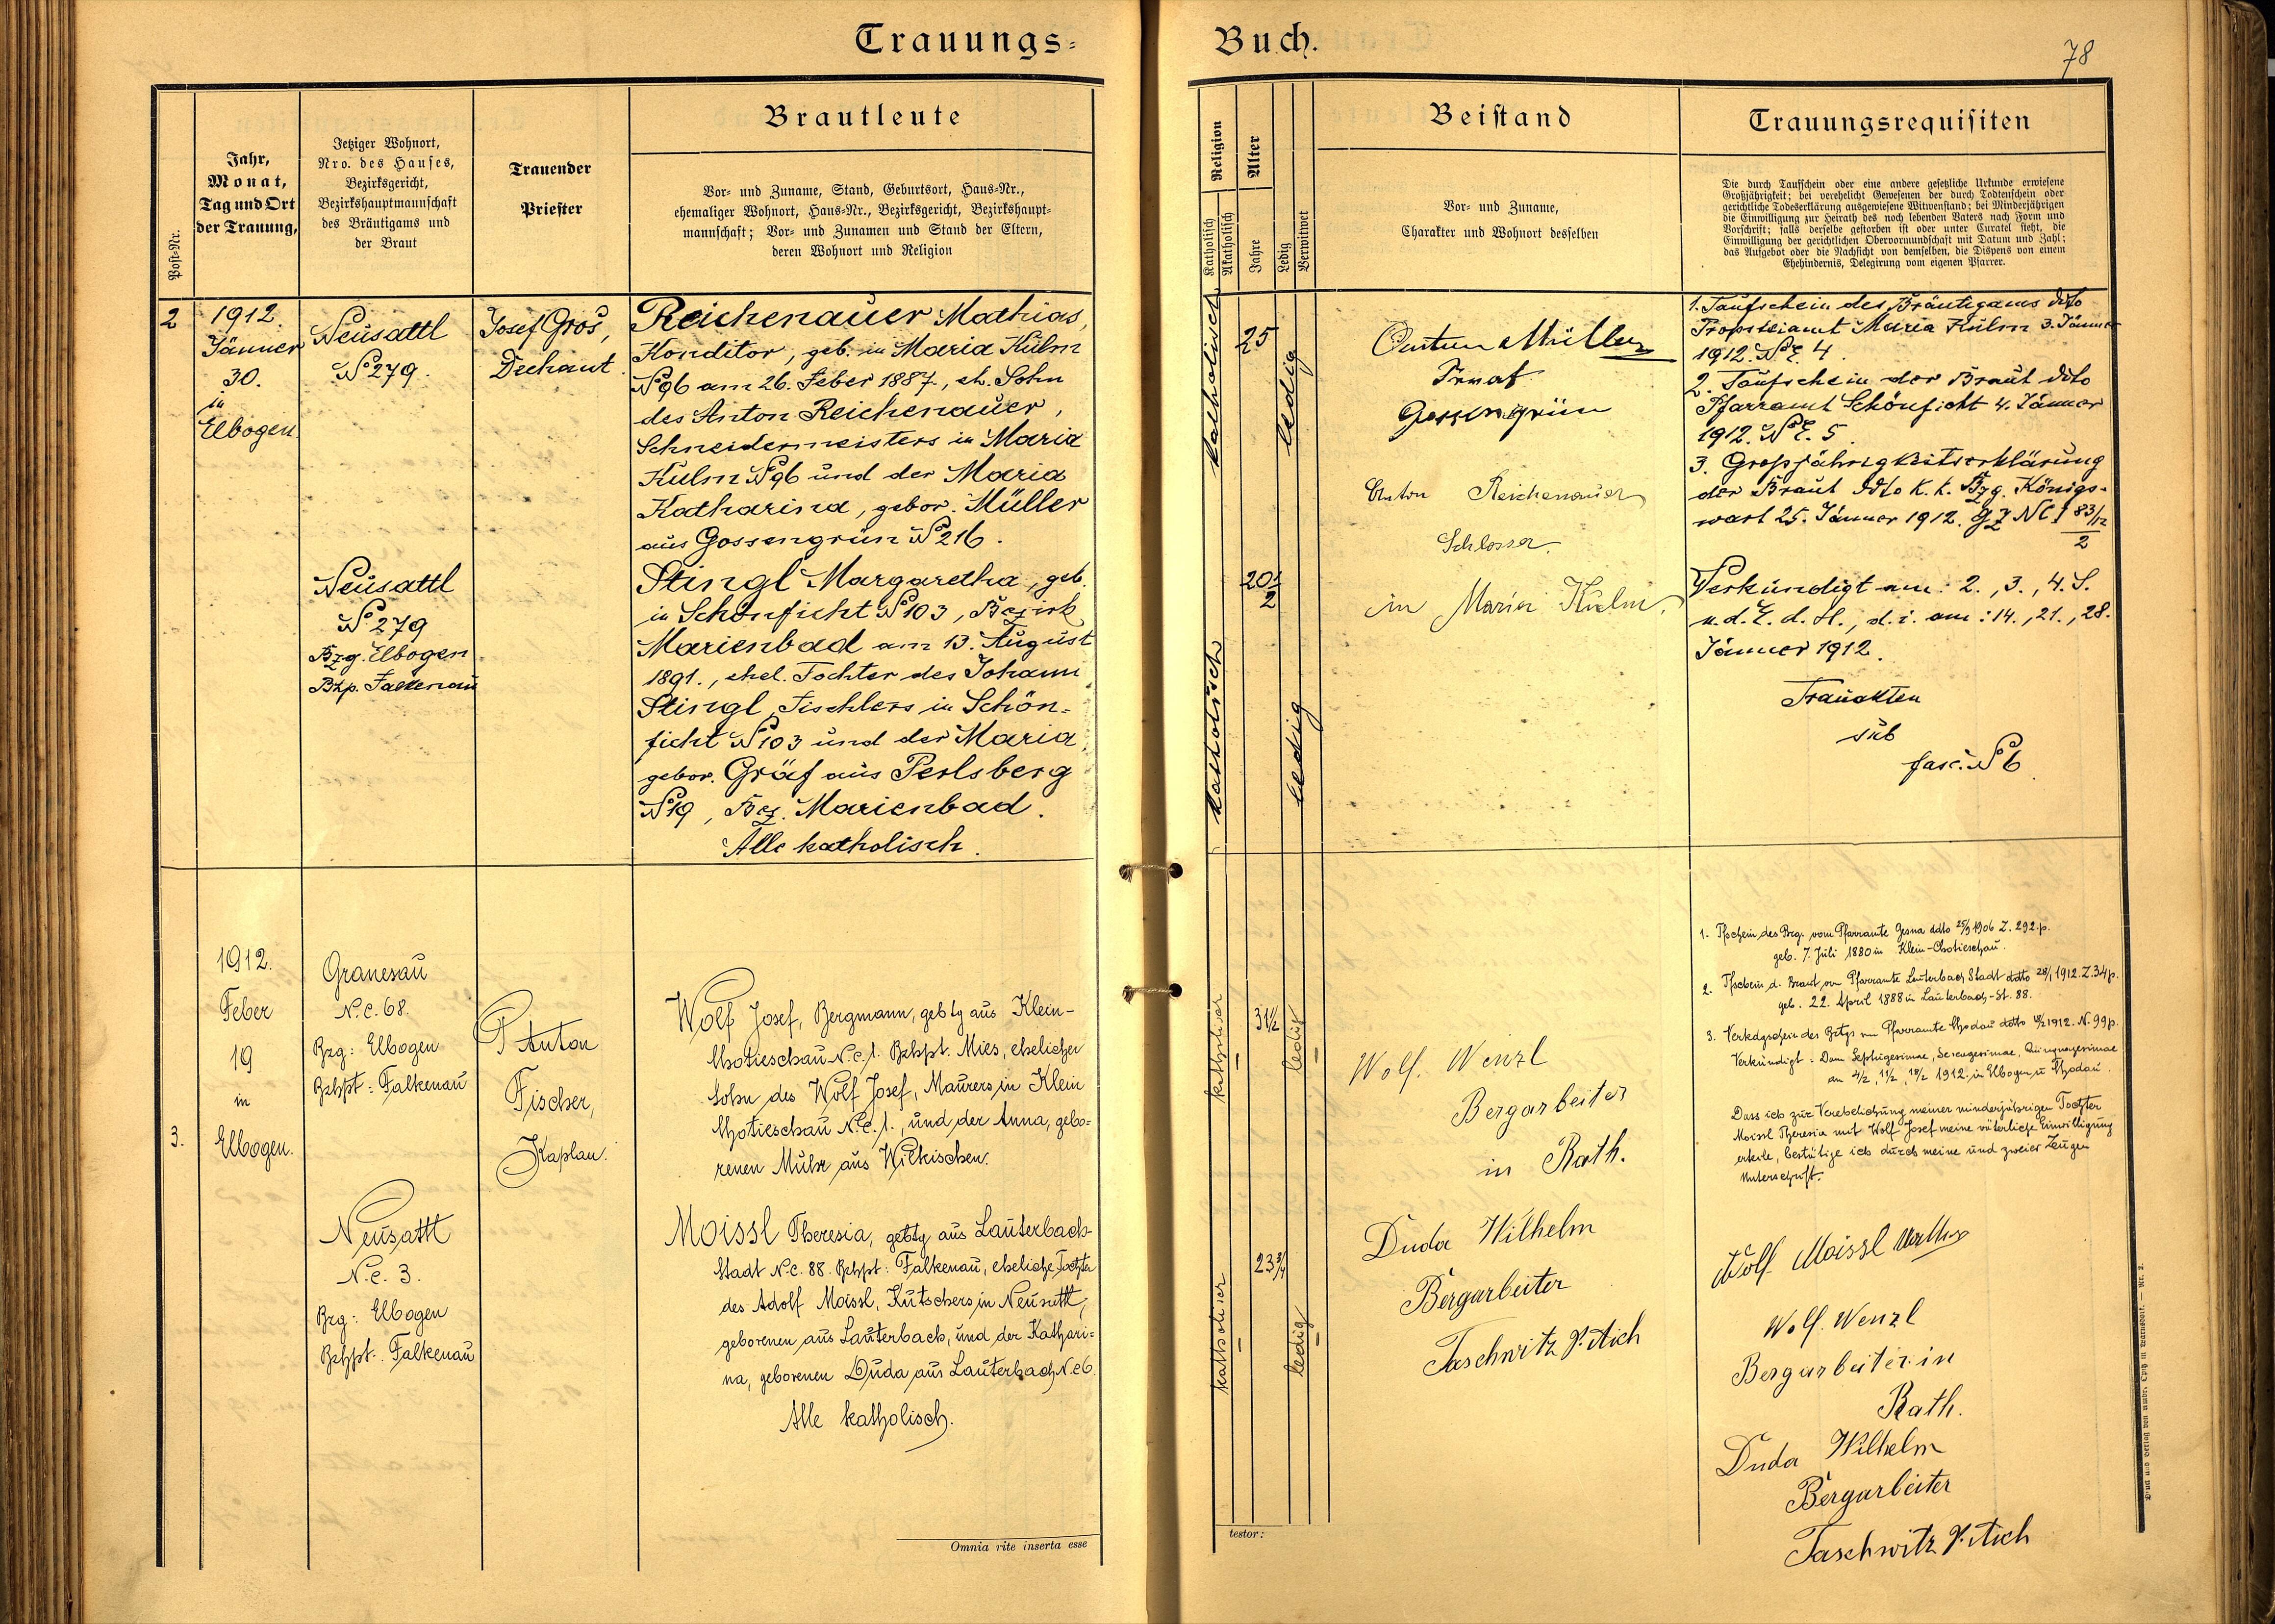 Trauungs=
Buch.
78
Post-Nr.
Jahr,
Monat,
Tag und Ort
der Trauung,
Jetziger Wohnort,
Nro. des Hauses,
Bezirksgericht,
Bezirkshauptmannschaft
des Bräutigams und
der Braut
Trauender
Priester
Brautleute
Vor- und Zuname, Stand, Geburtsort, Haus-Nr.,
ehemaliger Wohnort, Haus-Nr., Bezirksgericht, Bezirkshaupt-
mannschaft; Vor- und Zunamen und Stand der Eltern,
deren Wohnort und Religion
Religion
Katholisch
Akatholisch
Alter
Jahre
Ledig
Verwitwet
Beistand
Vor- und Zuname,
Charakter und Wohnort desselben
Trauungsrequisiten
Die durch Taufschein oder eine andere gesetzliche Urkunde erwiesene
Großjährigkeit; bei verehelicht Gewesenen der durch Todtenschein oder
gerichtliche Todeserklärung ausgewiesene Witwenstand; bei Minderjährigen
die Einwilligung zur Heirath des noch lebenden Vaters nach Form und
Vorschrift; falls derselbe gestorben ist oder unter Curatel steht, die
Einwilligung der gerichtlichen Obervormundschaft mit Datum und Zahl;
das Aufgebot oder die Nachsicht von demselben, die Dispens von einem
Ehehindernis, Delegirung vom eigenen Pfarrer.
2
1912.
Jänner
30.
in
Elbogen.
Neusattl
No 279.
Josef Groš,
Dechant.
Reichenauer Mathias,
Konditor, geb. in Maria Kulm
No 96 am 26. Feber 1887., eh. Sohn
des Anton Reichenauer,
Schneidermeisters in Maria
Kulm No 96 und der Maria
Katharina, gebor. Müller
aus Gossengrün No 216.
Neusattl
No 279
Bzg. Elbogen
Bhp. Falkenau
Stingl Margaretha, geb.
in Schönficht No 103, Bezirk
Marienbad am 13. August
1891., ehel. Tochter des Johann
Stingl, Tischlers in Schön=
ficht No 103 und der Maria,
gebor. Gräf aus Perlsberg
No 19, Bez. Marienbad.
Alle katholisch.
katholisch
25
ledig
katholisch
20 1/2
ledig
Anton Müller
Privat
Gossengrün
Anton Reichenauer
Schlosser
in Maria Kulm.
1. Taufschein des Bräutigams ddto
Propsteiamt Maria Kulm 3. Jänner
1912. No E. 4.
2. Taufschein der Braut ddto
Pfarramt Schönficht 4. Jänner
1912. No E. 5.
3. Großjährigkeitserklärung
der Braut ddto k. k. Bzg. Königs-
wart 25. Jänner 1912. GZ NC I 83/12
2
Verkündigt am: 2., 3., 4. S.
n. d. E. d. H., d. i. am: 14., 21., 28.
Jänner 1912.
Trauakten
sub
fasc. No 6.
3.
1912.
Feber
19
in
Elbogen.
Granesau
N.C. 68.
Bzg: Elbogen
Bzhpt: Falkenau
P. Anton
Fischer,
Kaplan.
Wolf Josef, Bergmann, gebtg aus Klein-
Chotieschau N.C. 1. Bzhpt. Mies, ehelicher
Sohn des Wolf Josef, Maurers in Klein
Chotieschau N.C. 1., und der Anna, gebo=
renen Muhr aus Wilkischen.
Neusattl
N.C. 3.
Bzg: Elbogen
Bzhpt: Falkenau
Moissl Theresia, gebtg aus Lauterbach-
Stadt N.C. 88. Bzhpt: Falkenau, eheliche Tochter
des Adolf Moissl, Kutschers in Neusattl,
geborenen aus Lauterbach, und der Kathari=
na, geborenen Duda aus Lauterbach N.C 6.
Alle katholisch.
katholisch
31 1/2
ledig
katholisch
23 3/4
ledig
Wolf. Wenzl
Bergarbeiter
in Rath.
Duda Wilhelm
Bergarbeiter
Taschwitz
1. Tfschein des Brg. vom Pfarramte ddto 25/9 1906 Z. 292.p.
geb. 7. Juli 1880 in Klein-Chotieschau.
2. Tfschein d. Braut vom Pfarramte Lauterbach Stadt ddto 28/1 1912. Z. 34 p.
geb. 22. April 1888 in Lauterbach-St. 88.
3. Verkdgschein des Brtgs vom Pfarramte Chodau ddto 18/2 1912. N. 99 p.
Verkündigt: Dom Septuagesimae, Sexagesimae, Quinquagesimae
am 4/2, 11/2, 18/2 1912. in Elbogen u Chodau.
Dass ich zur Verehelichung meiner minderjährigen Tochter
Moissl Theresia mit Wolf Josef meine väterliche Einwilligung
erteile, bestätige ich durch meine und zweier Zeugen
Unterschrift.
Adolf Moissl
Wolf. Wenzl
Bergarbeiter in
Rath.
Duda Wilhelm
Bergarbeiter
Taschwitz
Omnia rite inserta esse
testor: